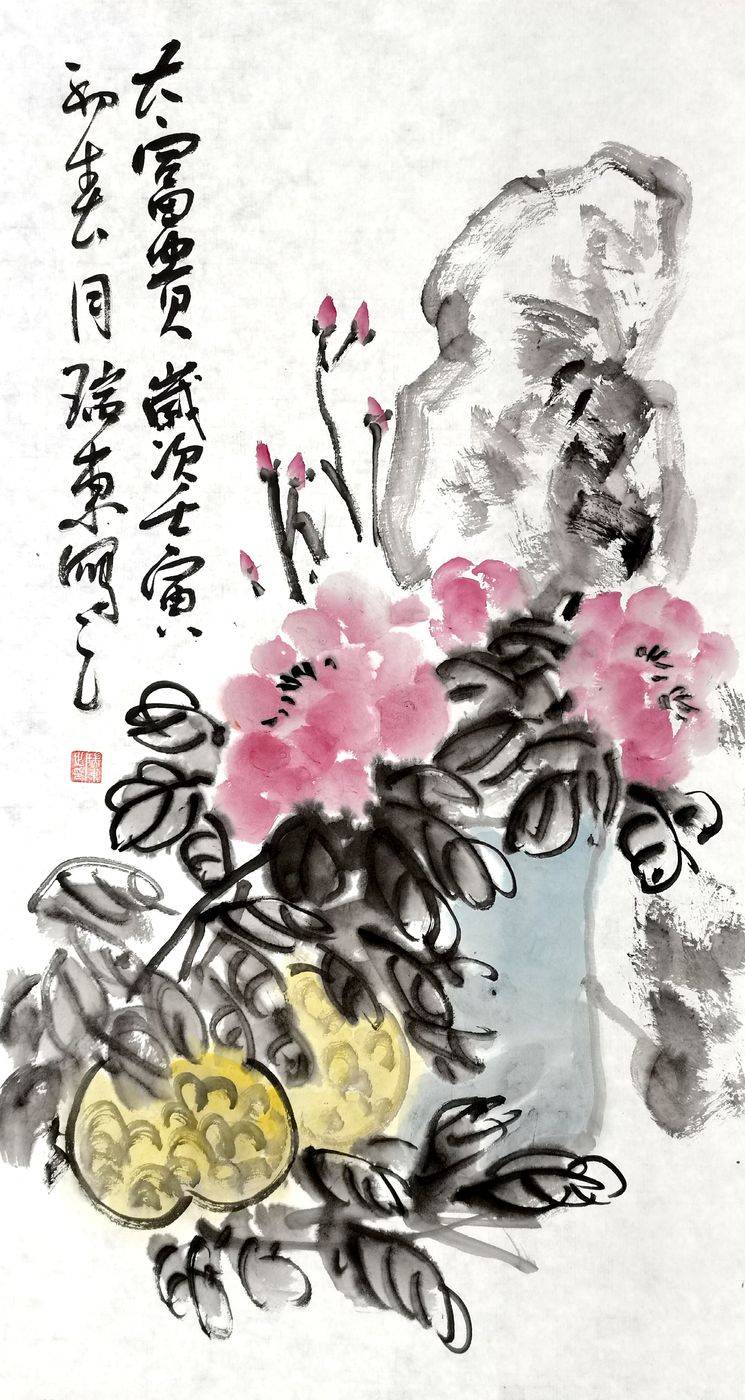 大富貴歲次壬寅
初春月瑞東寫之